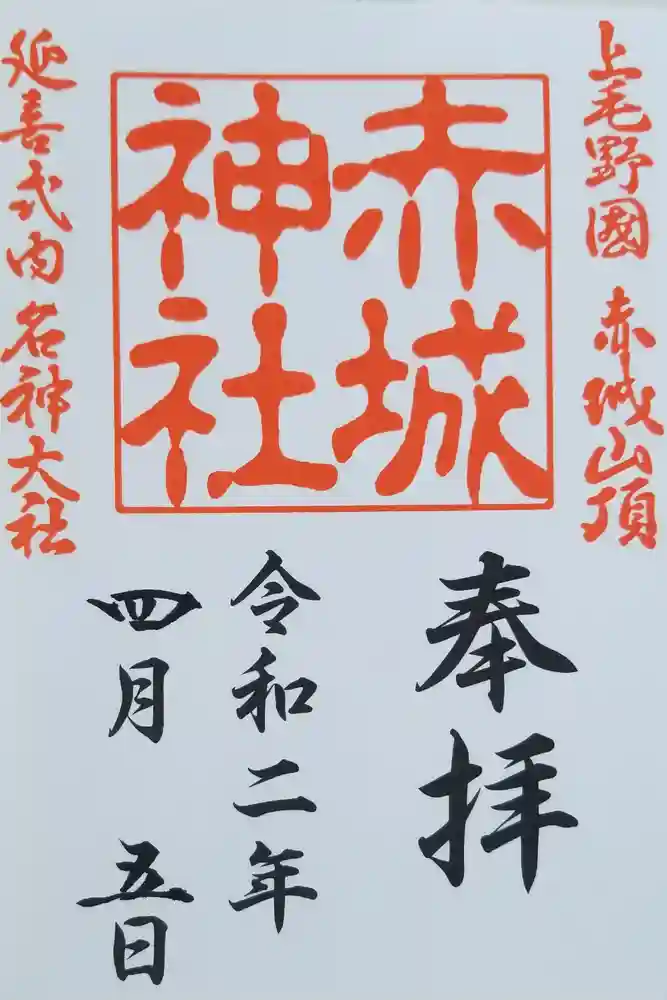 上毛野國 赤城山頂
赤城
神社
延喜式内 名神大社
奉拝
令和二年
四月 五日